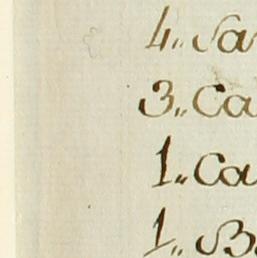 4,, Sa
3,, Ca
1,, Ca
1,, Ba